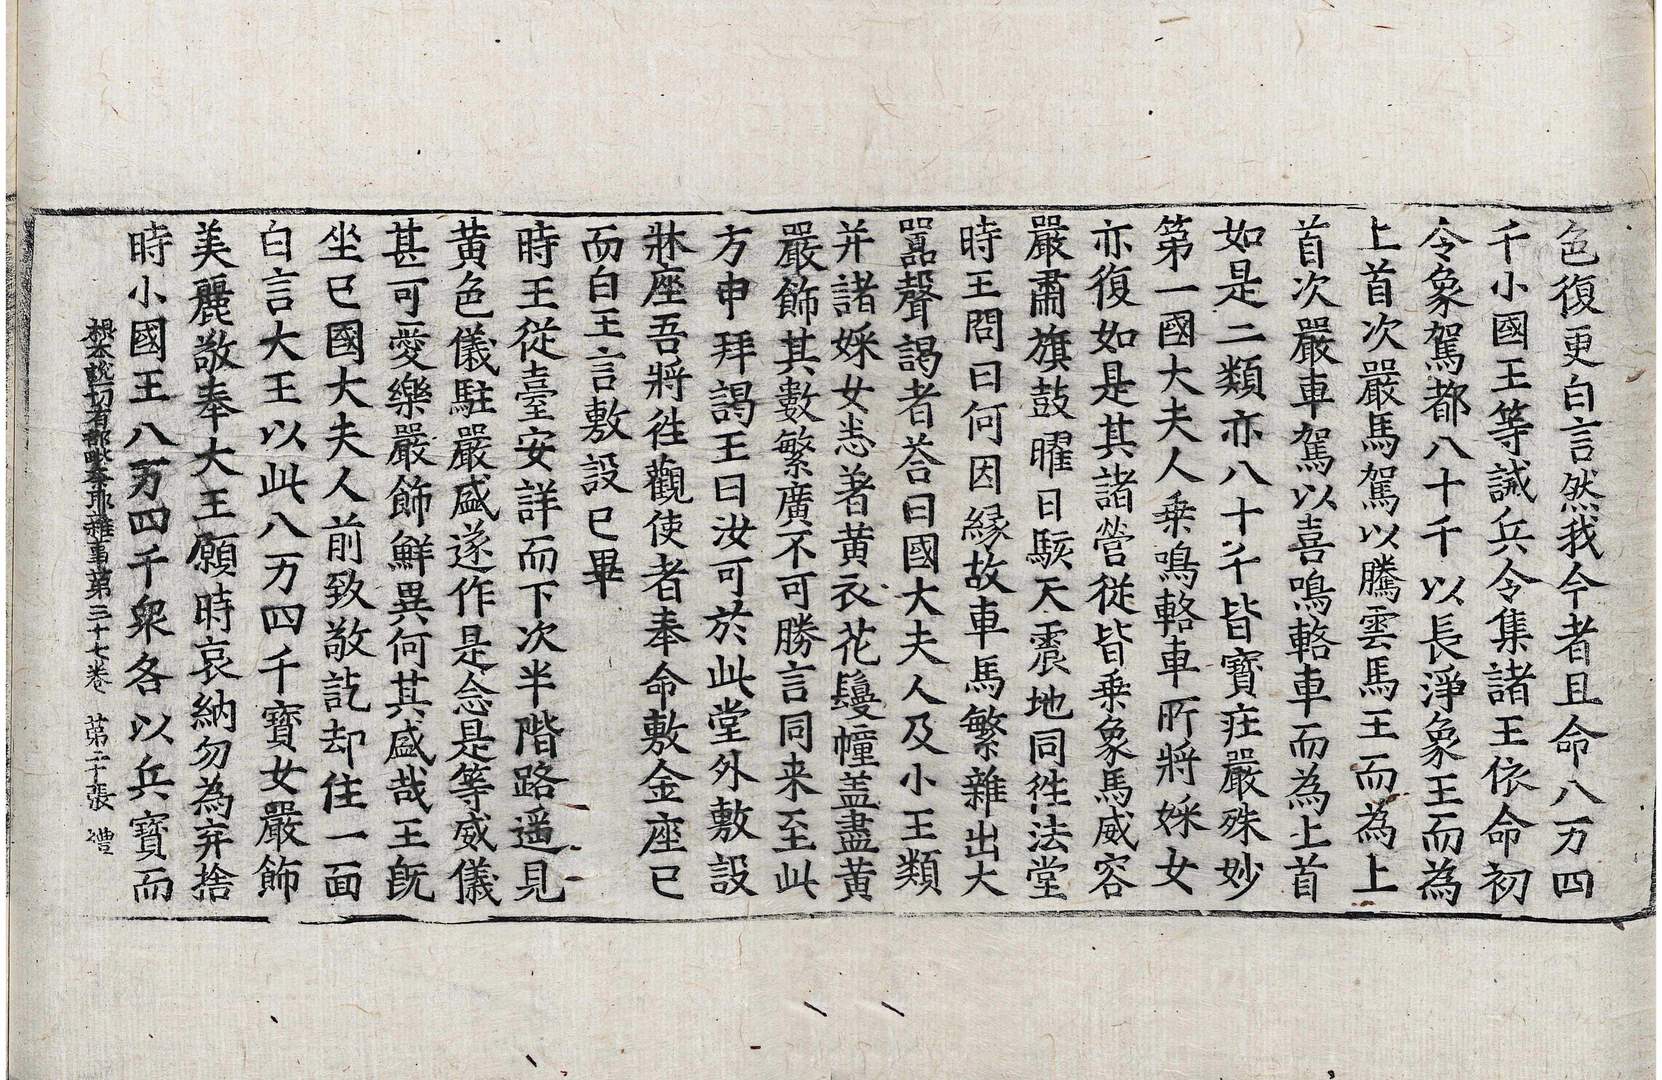 色復更白言然我今者且命八万四
千小國王等誡兵令集諸王依命初
令象駕都八十千以長淨象王而為
上首次嚴馬駕以騰雲馬王而為上
首次嚴車駕以喜鳴輅車而為上首
如是二類亦八十千皆寶庄嚴殊妙
第一國大夫人乗鳴輅車所將婇女
亦復如是其諸營從皆乗象馬威容
嚴肅旗鼓曜日駭天震地同徃法堂
時王問曰何因緣故車馬繁雜出大
嚻聲謁者荅曰國大夫人及小王類
并諸婇女悉著黄衣花鬘幢盖盡黄
嚴飾其數繁廣不可勝言同来至此
方申拜謁王曰汝可於此堂外敷設
牀座吾將徃觀使者奉命敷金座已
而白王言敷設已畢
時王從臺安詳而下次半階路遥見
黄色儀駐嚴盛遂作是念是等威儀
甚可愛樂嚴飾鮮異何其盛哉王旣
坐已國大夫人前致敬訖却住一面
白言大王以此八万四千寶女嚴飾
美麗敬奉大王願時哀納勿為弃捨
時小國王八万四千衆各以兵寶而
根本說一切有部毗奈耶雜事第三十七卷 第二十張 禮